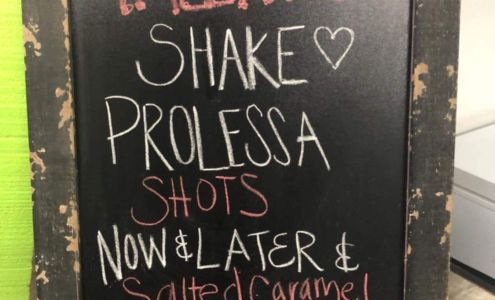 SHAKE ♡
PROLESSA
SHOTS
NOW & LATER &
Salted Caramel